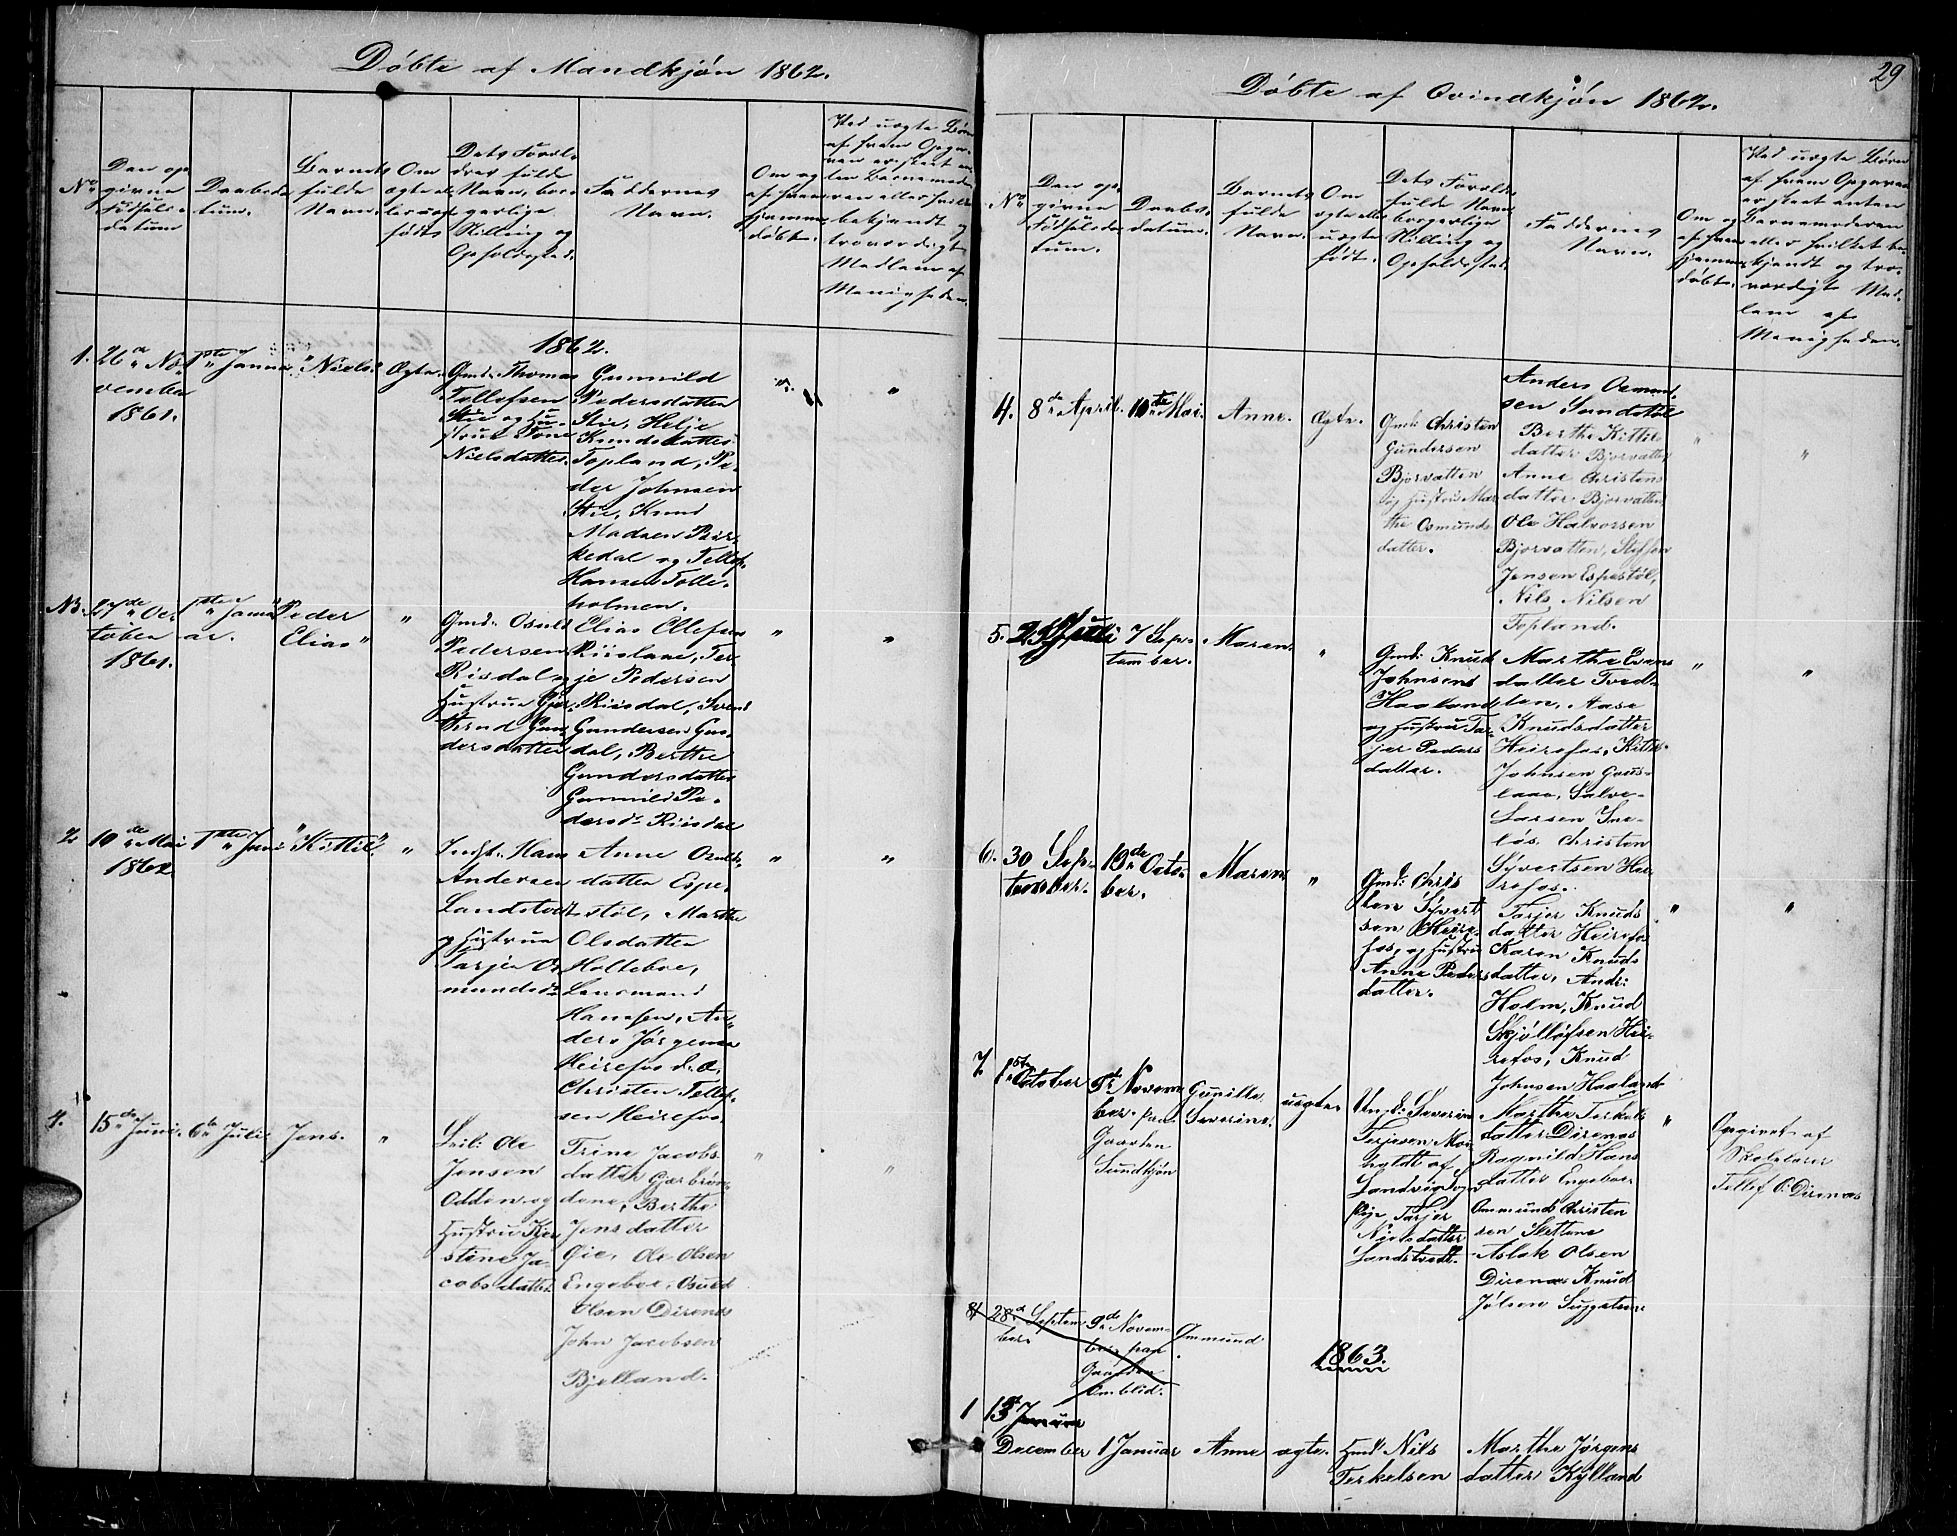 Døbte af Mandkjøn 1862.
No
Den op
givne
Fødsels-
datum
Daabsda
tum.
Barnets
fulde
Navn.
Om
ægte el
ler uægte
født.
Dets Foræl-
dres fulde
Navn, bor-
gerlige
Stilling og
Opholdssted.
Faddernes
Navn.
Om og
af hvem
hjemme
døbt.
Ved uægte Børn
af hvem Opga-
ven er skeet en
ten Barnemode
ren eller hvilke
bekjendt og
troværdigt
Medlem af
Menigheden.
1862.
1.
26de No
vember
1861.
1ste Janua
Niels.
Ægte.
Gmd. Thomas
Tellefsen
Stie og Hu-
strue Tone
Nielsdatter.
Gunnild
Pedersdatter
Stie, Helje
Knudsdatter
Topland, Pe-
der Johnsen
Stie, Knud
Madsen Bir-
kedal og Tellef
Hansen Tolle-
holmen.
"
"
27de Oc
tober
1861.
1ste Janu
ar.
Peder
Elias
"
Gmd. Osuld
Pedersen
Risdal og
Hustrue
Gun
dersdatter
Elias Ollefsen
Riislane, Ter
je Pedersen
Riisdal,
Gundersen Gus
dal, Berthe
Gundersdatter
Gunnild Pe-
dersd. Riisdal
"
"
2
10de Mai
1862.
1ste Juni
Kittil.
"
Indst. Hans
Andersen
Landstvedt
og Hustrue
Tarjer Os
mundsd.
Anne Osulds
datter Espe-
støl, Marthe
Olsdatter
Holteboe,
Lensmand
Hanssen, An-
ders Jørgensen
Heirefos d. æ.
Christen Tellef-
sen Heirefos.
"
"
4.
15de Juni.
6te Juli
Jens.
"
Seil: Ole
Jensen
Odden og
Hustru Kjer
stine Ja-
cobsdatter
Trine Jacobs
datter Gjærbrøn
dene, Berthe
Jensdatter
Øie, Ole Olsen
Engeboe, Osuld
Olsen Direnæs
John Jacobsen
Bjelland.
"
"
29
Døbte af Qvindkjøn 1862.
No
Den op
givne
Fødselsda
tum.
Daabs-
datum.
Barnets
fulde
Navn.
Om
ægte eller
uægte
født.
Dets Forældr
fulde Navn
borgerlige
Stilling og
Opholdssted.
Faddernes
Navn.
Om og
af hvem
hjemme
døbt.
Ved uægte Børn
af hvem Opgaven
er skeet enten
Barnemoderen
eller hvilket be-
kjendt og tro-
værdigt Med-
lem af
Menigheden.
4.
8de April.
10de Mai.
Anne.
Ægte.
Gmd: Christen
Gundersen
Bjorvatten
og Hustru Mar
the Osmunds
datter.
Anders Osmund
sen Sundstøl
Berthe Kittils
datter Bjorvatten
Anne Christens
datter Bjorvatten
Ole Halvorsen
Bjorvatten, Steffen
Jensen Espestøl,
Nils Nilsen
Topland.
"
"
5.
Juli
7 Sep-
tember.
Maren.
"
Gmd: Knud
Johnsens
Haaland
og Hustru Tar
jer Peders
datter.
Marthe Evens
datter Tved-
ten, Aase
Knudsdatter
Heirefos, Kittil
Johnsen Gous-
laae, Salve
Larsen Sne-
løs. Christen
Syvertsen Hei-
refos.
"
"
6.
30 Sep-
tember.
19de Octo-
ber.
Maren
"
Gmd: Chris
ten Syvert
sen Heire-
fos, og Hustru
Anne Peders
datter.
Tarjer Knuds
datter Heirefos
Karen Knuds
datter, Andr:
Holm, Knud
Skjølløfsen Hei-
refos, Knud
Johnsen Haaland
"
"
7.
1ste October
9de Novem
ber. paa
Gaarden
Sundtjøn
Gunille
Severine.
uægte
Ungk: Severin
Terjesen Mor
holdt af
Landvig Sogn
Pige Tarjer
Nielsdatter
Landstvedt.
Marthe Terkels
datter Direnæs
Ragnild Hans
datter Engeboe
Ommund Christen
sen Slettene
Aslak Olsen
Direnæs Knud
Jølsen Suggetsen
"
Opgivet af
Skolelærer
Tellef O. Direnæs
8
28de Septem
ber.
9de Novem-
ber paa
Gaarden
Omblid.
Ommund
1863.
1
13de Janua
December
1 Januar
Anne
ægte.
Gmd: Nils
Terkelsen
Marthe Jørgens
datter Kylland